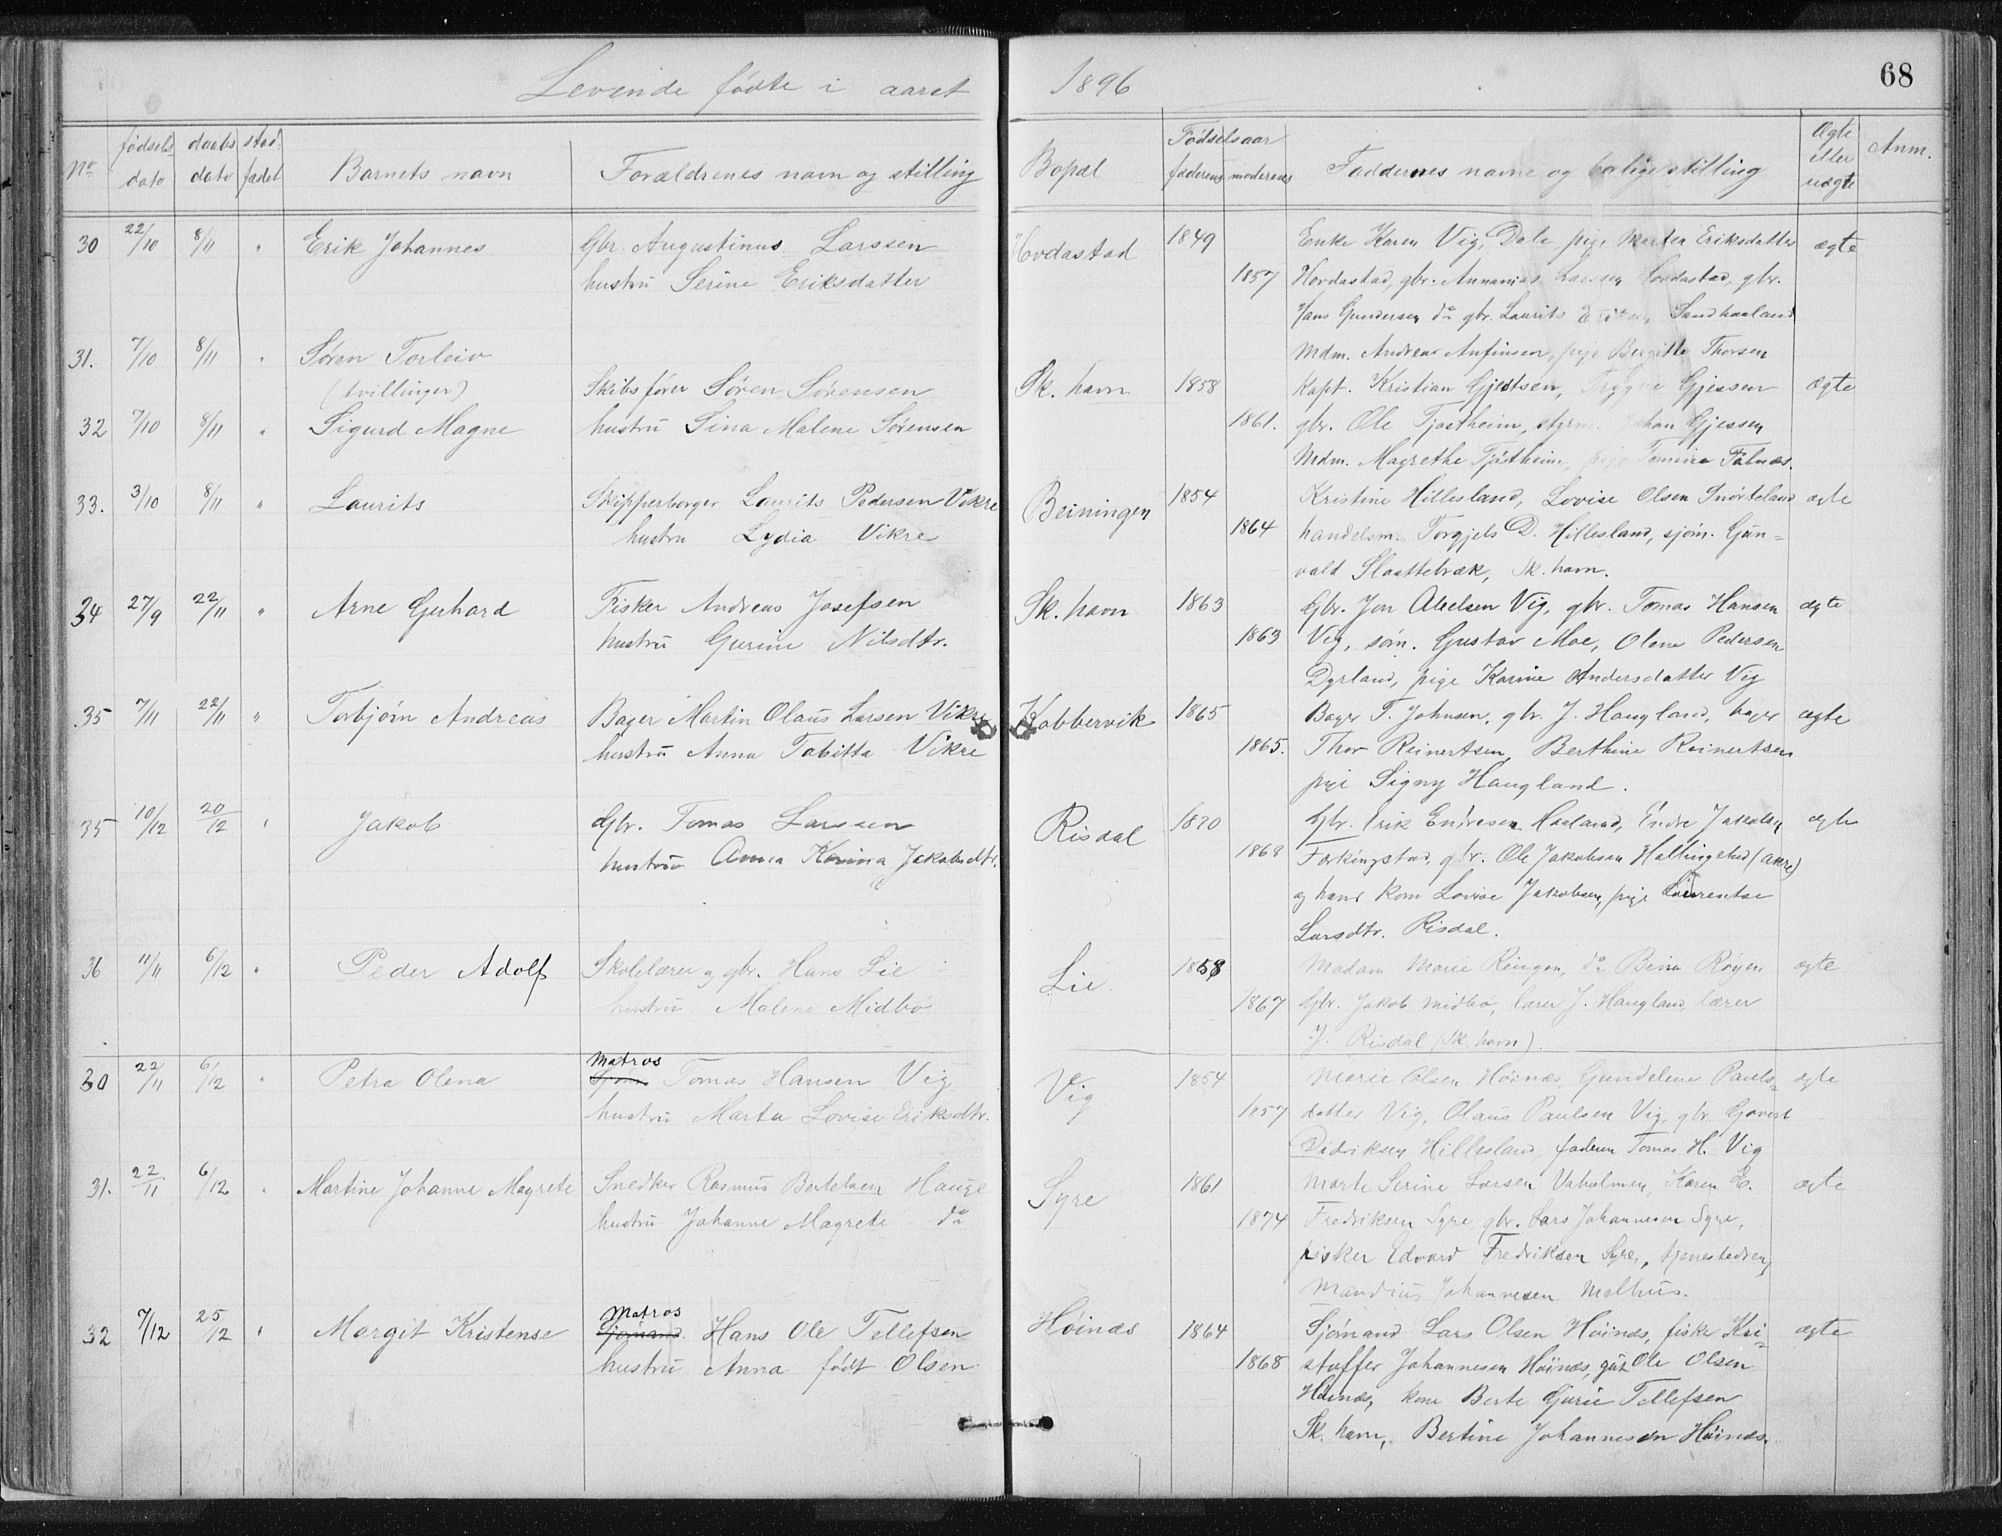 Levende fødte i aaret 1896
68
No fødsels dato daabs dato sted fædet Barnets navn Forældrenes navn og stilling Bopæl Fødselsaar faderens moderens Faddernes navne og borlige stilling Ægte eller uægte Anm.
30 22/10 8/11 " Erik Johannes Gbr. Augustinus Larssen Hovdastad 1849 Enke Karen Vig, Dale pige Martea Eriksdatter ægte
hustru Serine Eriksdatter 1857 Hovdastad, gbr. Annanias Larsen Hovdastad, gbr.
Hans Gundersen do gbr. Laurits Sandhaaland
31. 7/10 8/11 " Søren Torleiv Mdm. Andrea Anfinsen, pige Birgitte Thorsen
(tvillinger) Skibsfører Søren Sørensen Sk. havn 1858 Kapt. Kristian Gjestsen, Trygve Gjessen Ægte
32 7/10 8/11 " Sigurd Magne hustru Sina Malene Sørensen 1861. gbr. Ole Tjostheim, styrm. Johan Gjessen
Mdm. Magrethe Tjøstheim, pige Tomine Falnæs.
33. 3/10 8/11 " Laurits Skipperborger Laurits Pedersen Vikre Beiningen 1854 Kristine Hillesland, Lovise Olsen Snørteland ægte
hustru Lydia Vikre 1864 handelsm. Torgjels D. Hillesland, sjøm. Gun-
vald Slaattebræk, Sk. havn.
34 27/9 22/11 " Arne Gerhard Fisker Andreas Josefsen Sk. havn 1863 Gbr. Jon Abelsen Vig, gbr. Tomas Hansen ægte
hustru Gurine Nilsdtr. 1863 Vig, søm. Gustav Moe, Olene Pedersen
Dyrland, pige Karine Andersdatter Vig
35 7/11 22/11 " Torbjørn Andreas Bager Martin Olaus Larsen Vikre Kobbervik 1865 Bager T. Johnsen, gbr. J. Haugland, bager ægte
hustru Anna Tabitta Vikre 1865. Thor Reinertsen, Berthine Reinertsen
pige Signy Haugland.
35 10/12 20/12 " Jakob Gbr. Tomas Larssen Risdal 1870 Gbr. Erik Endresen Haaland, Endre Jakobsen ægte
hustru Anna Karina Jakobsdtr. 1868 Førkingstad, gbr. Ole Jakobsen Hallingstad (Akre)
og hans kone Lovise Jakobsen, pige Laurentse
Larsdtr. Risdal.
36 11/11 6/12 " Peder Adolf Skolelærer og gbr. Hans Lie Lie 1858 Madam Marie Ringen, do Bina Røgen ægte
hustru Malene Midbø 1867 Gbr. Jakob Midbø, lærer J. Haugland, lærer
J. Risdal (Sk. havn).
30 22/11 6/12 " Petra Olena Matros Tomas Hansen Vig Vig 1854 Marie Olsen Høinæs, Gundelene Pauls- ægte
hustru Marta Lovise Eriksdtr. 1857 datter Vig, Olaus Paulsen Vig, gbr. Govert
Didriksen Hillesland, faderen Tomas H. Vig
31. 22/11 6/12 " Martine Johanne Magrete Snedker Rasmus Bertelsen Hauge Syre 1861 Marte Serine Larsen Vaholmen, Karen E. ægte
hustru Johanne Magrete do 1874 Fredriksen Syre, gbr. Lars Johannesen Syre,
fisker Edvard Fredriksen Syre, tjenestedreng
Mandius Johannesen Melhus.
32 7/12 25/12 " Margit Kristense Matros Hans Ole Tellefsen Høinæs 1864 Sjømand Lars Olsen Høinæs, fisker Kri- ægte
hustru Anna født Olsen 1868 stoffer Johannesen Høinæs, gut Ole Olsen
Høinæs, kone Berte Gurie Tellefsen
Sk. havn, Bertine Johannesen Høinæs.